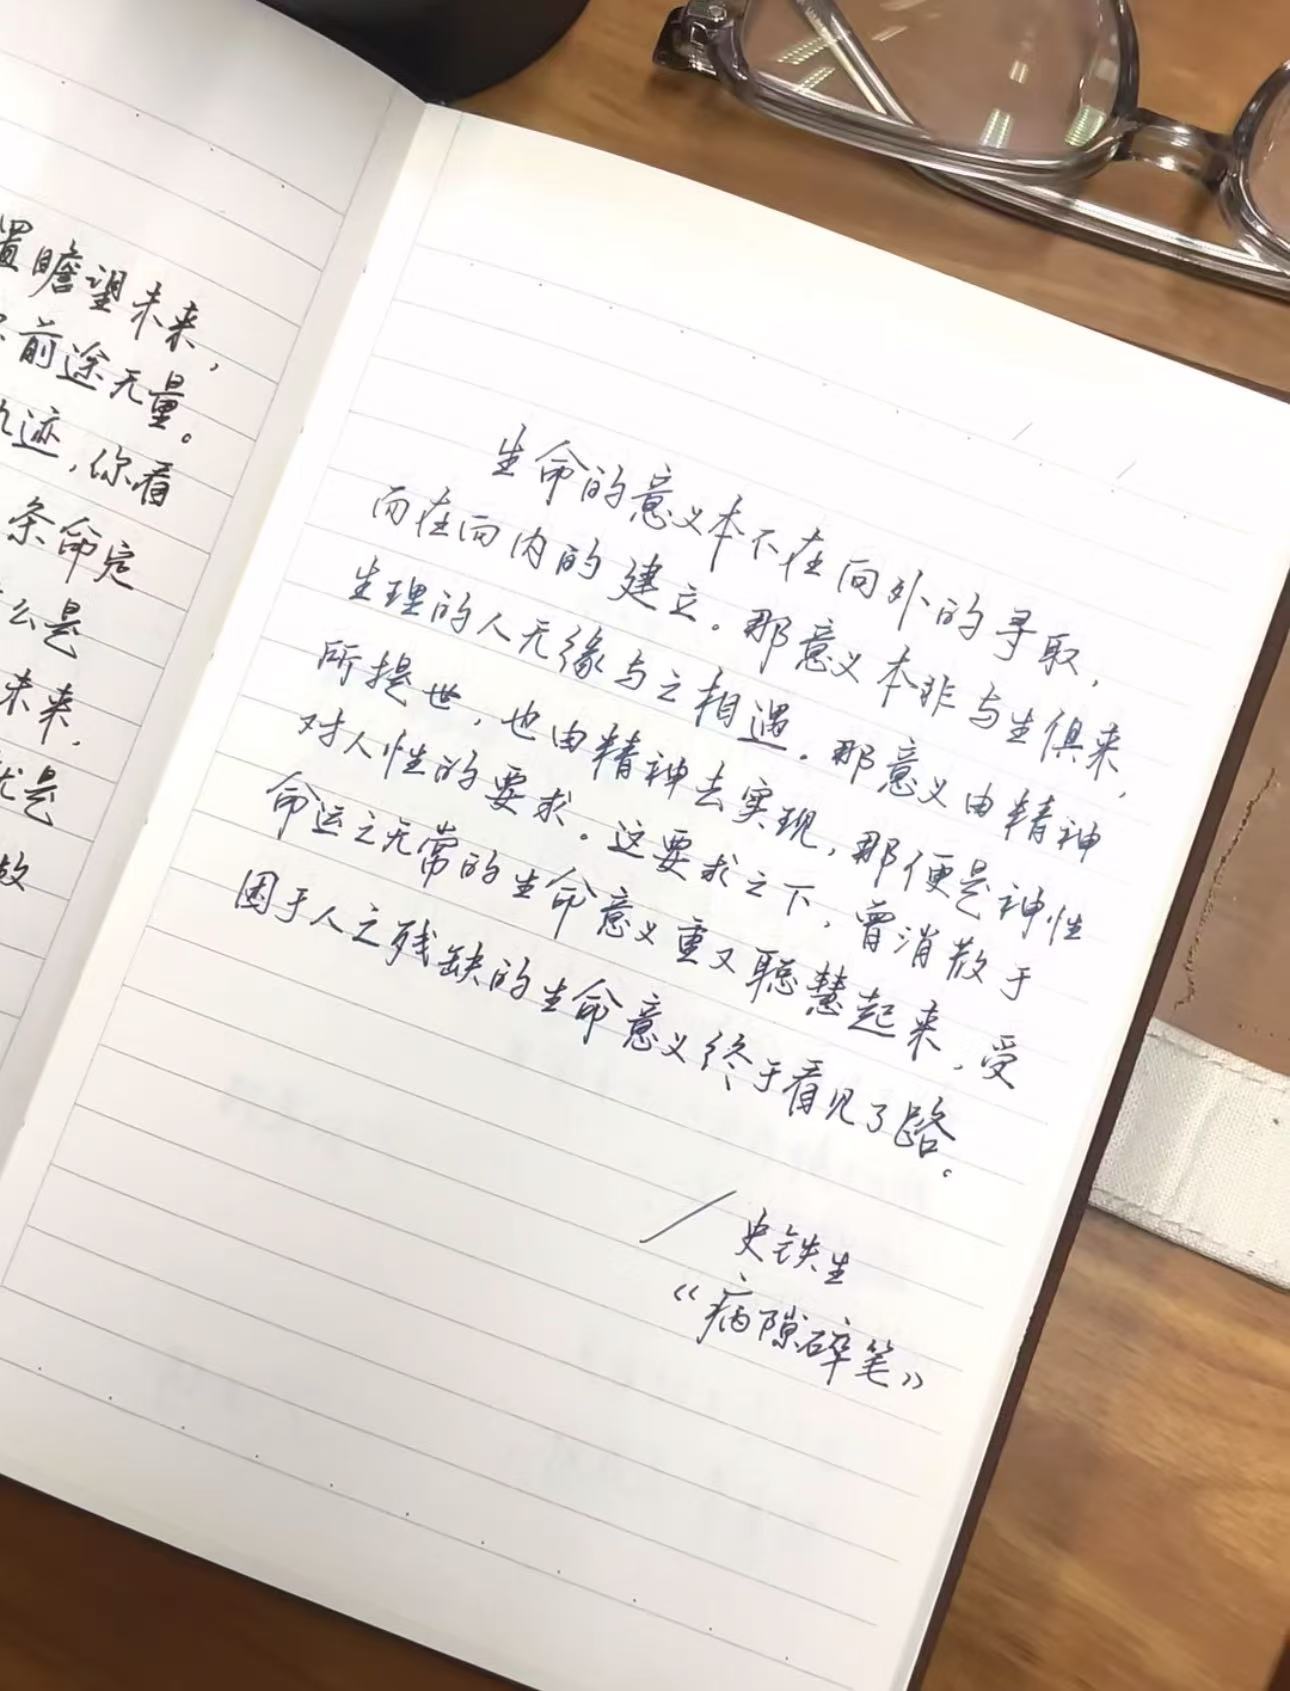 置瞻望未来,
前途无量。
轨迹,你看
条命定
么是
未来,
就是
故
生命的意义本不在向外的寻取,
而在向内的建立。那意义本非与生俱来,
生理的人无缘与之相遇。那意义由精神
所提世,也由精神去实现,那便是神性
对人性的要求。这要求之下,曾消散于
命运之无常的生命意义重又聪慧起来,受
困于人之残缺的生命意义终于看见了路。
/史铁生
《病隙碎笔》